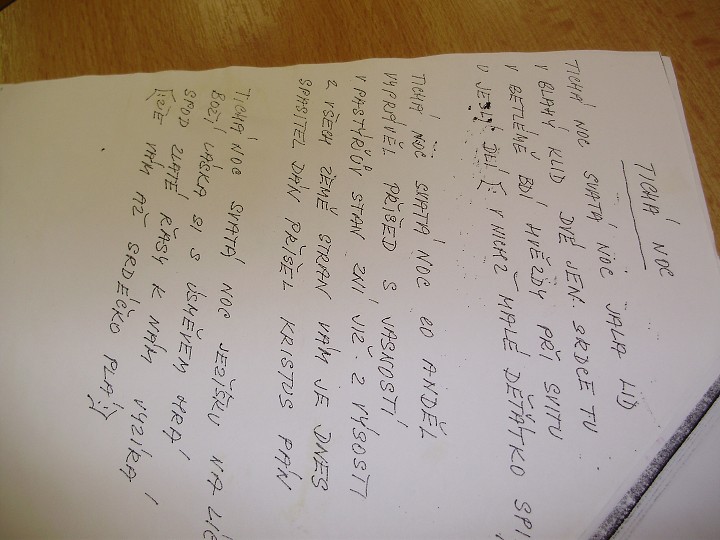 TICHÁ NOC
TICHÁ NOC SVATÁ NOC JALA LID
V BLAHÝ KLID DVĚ JEN SRDCE TU
V BETLÉMĚ BDÍ HVĚZDY PŘI SVITU
V JESLÍ DEÍ [: V NICHŽ MALÉ DĚŤÁTKO SPÍ
TICHÁ NOC SVATÁ NOC CO ANDĚL
VYPRÁVĚL PŘIŠED S JASNOSTÍ
V PASTÝŘŮV STAN ZNÍ JIŽ Z VÝSOSTI
Z VŠECH ZEMĚ STRAN VÁM JE DNES
SPASITEL DÁN PŘIŠEL KRISTUS PÁN
TICHÁ NOC SVATÁ NOC JEŽÍŠKU NA
BOŽÍ LÁSKA SI S ÚSMĚVEM HRÁ
SPOD ZLATÉ ŘASY K NÁM VYZÍRÁ
[: ŽE NÁM AŽ SRDÉČKO PLÁ :]